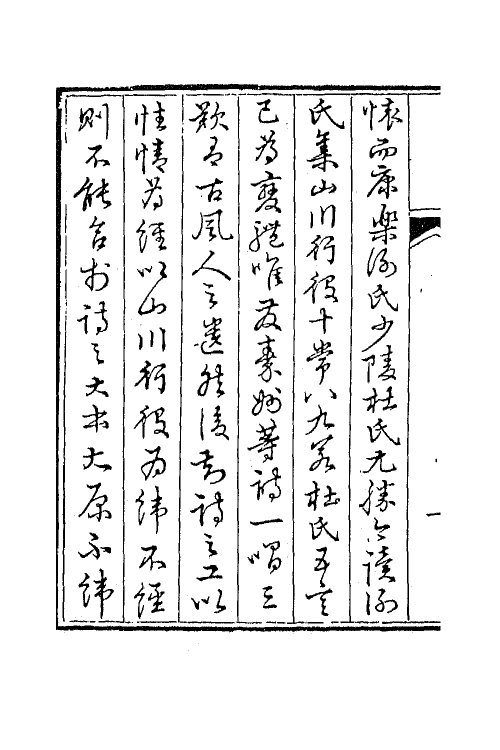 懷而康樂謝氏少陵杜氏尤勝今讀謝
氏集山川行役十常八九若杜氏五言
已為變體唯發秦州等詩一唱三
歎有古風人之遺然後知詩之工以
性情為經以山川行役為緯不經
則不能合於詩之大本大原不緯